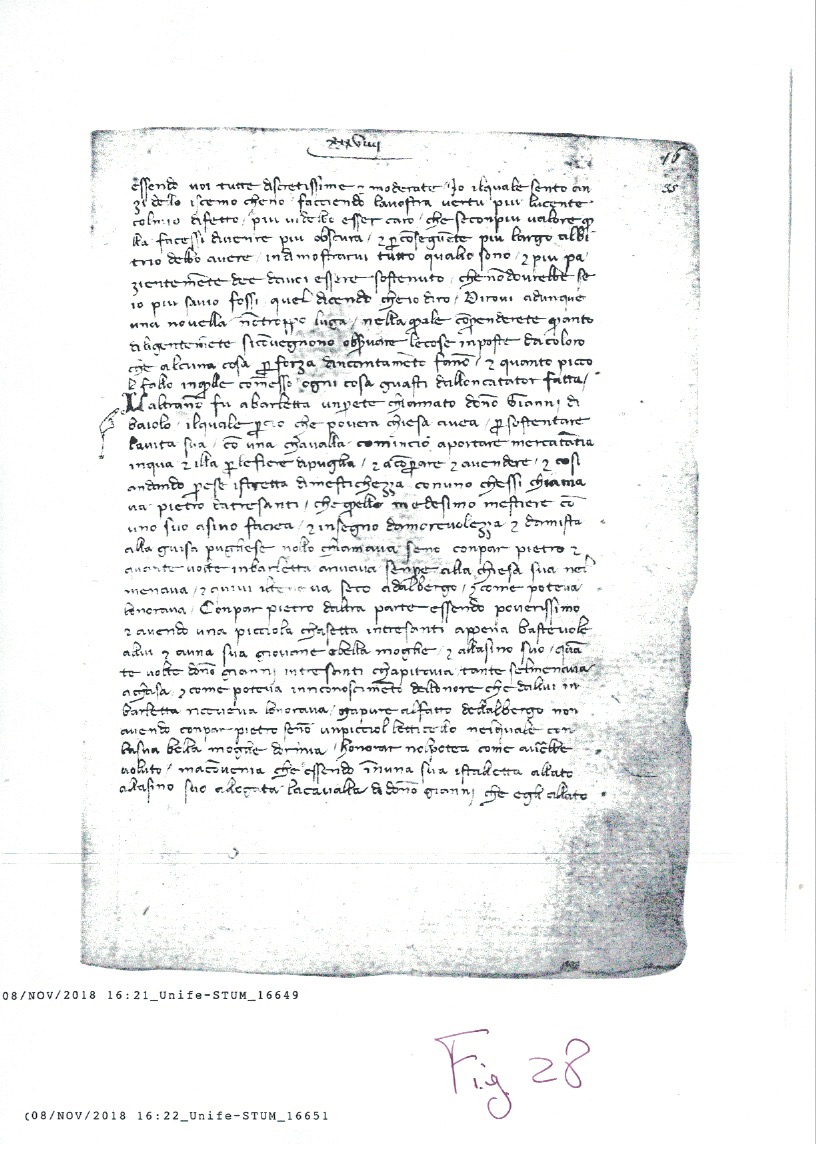 xxxviiij
16
55
essendo voi tutte discretissime ⁊ moderate / Io ilquale sento an
zi dello iscemo cheno / facciendo lavostra vertu piu lucente
colmio difetto / piu vi debbo esser caro / che seconpiu valore q̄
lla facessi divenire piu obscura / ⁊ ꝑ cōseguēte piu largo albi
trio debbo avere / indimostrarvi tutto qualio sono / ⁊ piu pa
zientemēte dee davoi essere sostenuto / che nōdovrebbe se
io piu savio fossi / quel dicendo cheio diro / Dirovi adunque
una novella nōtroppo luga / nella quale cōpenderete quanto
diligentemēte sicōvegnono observare lecose inposte dacoloro
che alcuna cosa ꝑ forza dincantamēto fanō / ⁊ quanto picco
lo fallo inquelle comesso ogni cosa guasti dalloncatator fatta /
Laltrāno fu abarletta unprete chiamato dōno Gianni di
Barolo / ilquale ꝑcio che povera chiesa avea / ꝑ sostentare
lavita sua / cō una chavalla comincio aportare mercatātia
inqua ⁊ illa ꝑ le fiere dipuglia / ⁊ acōꝑare ⁊ avendere / ⁊ cosi
andando prese istretta dimestichezza conuno chessi chiama
va pietro datresanti / che quello medesimo mestiere cō
uno suo asino faciea / ⁊ insegno damorevolezza ⁊ damista
alla guisa pugliese nollo chiamava senō conpar pietro ⁊
quante volte inbarletta arrivava senpre alla chiesa sua nel
menava / ⁊ quivi il teneva seco adalbergo / ⁊ come poteva
lonorava / Conpar pietro daltra parte essendo poverissimo
⁊ avendo una picciola chasetta intresanti appena bastevole
allui ⁊ auna sua giovane ebella moglie / ⁊ allasino suo / quā
te volte dōno gianni intresanti chapitava tante selmenava
achasa / ⁊ come poteva inriconoscimēto delonore che dallui in
barletta riceveva lonorava / mapure alfatto dellalbergo non
avendo conpar pietro senō unpicciol letticello nelquale con
lasua bella moglie dormiva / honorar nolpotea come avrebbe
voluto / macōvenia che essendo inuna sua istalletta allato
allasino suo allogata lacavalla di dōno gianni che egli allato
08/NOV/2018 16:21_Unife-STUM_16649
Fig. 28
(08/NOV/2018 16:22_Unife-STUM_16651